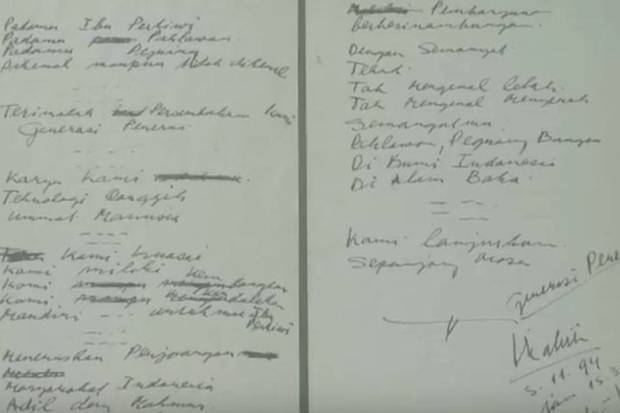 Padamu Ibu Pertiwi
Padamu Pahlawan
Padamu Pejuang
Dikenal maupun tidak dikenal
Terimalah Persembahan Kami
Generasi Penerus
Karya Kami
Teknologi Canggih
Ummat Manusia
Kami kuasai
Kami miliki
Kami kembangkan
Kami kendalikan
Mandiri --- untukmu Ibu
Pertiwi
Meneruskan Perjuangan
Masyarakat Indonesia
Adil dan Makmur
Pembangunan
berkesinambungan.
Dengan Semangat
Tekad
Tak mengenal lelah
Tak mengenal menyerah
Semangatmu
Pahlawan, Pejuang Bangsa
Di Bumi Indonesia
Di Alam Baka.
Kami lanjutkan
Sepanjang Masa
Generasi Pene
5.11.94